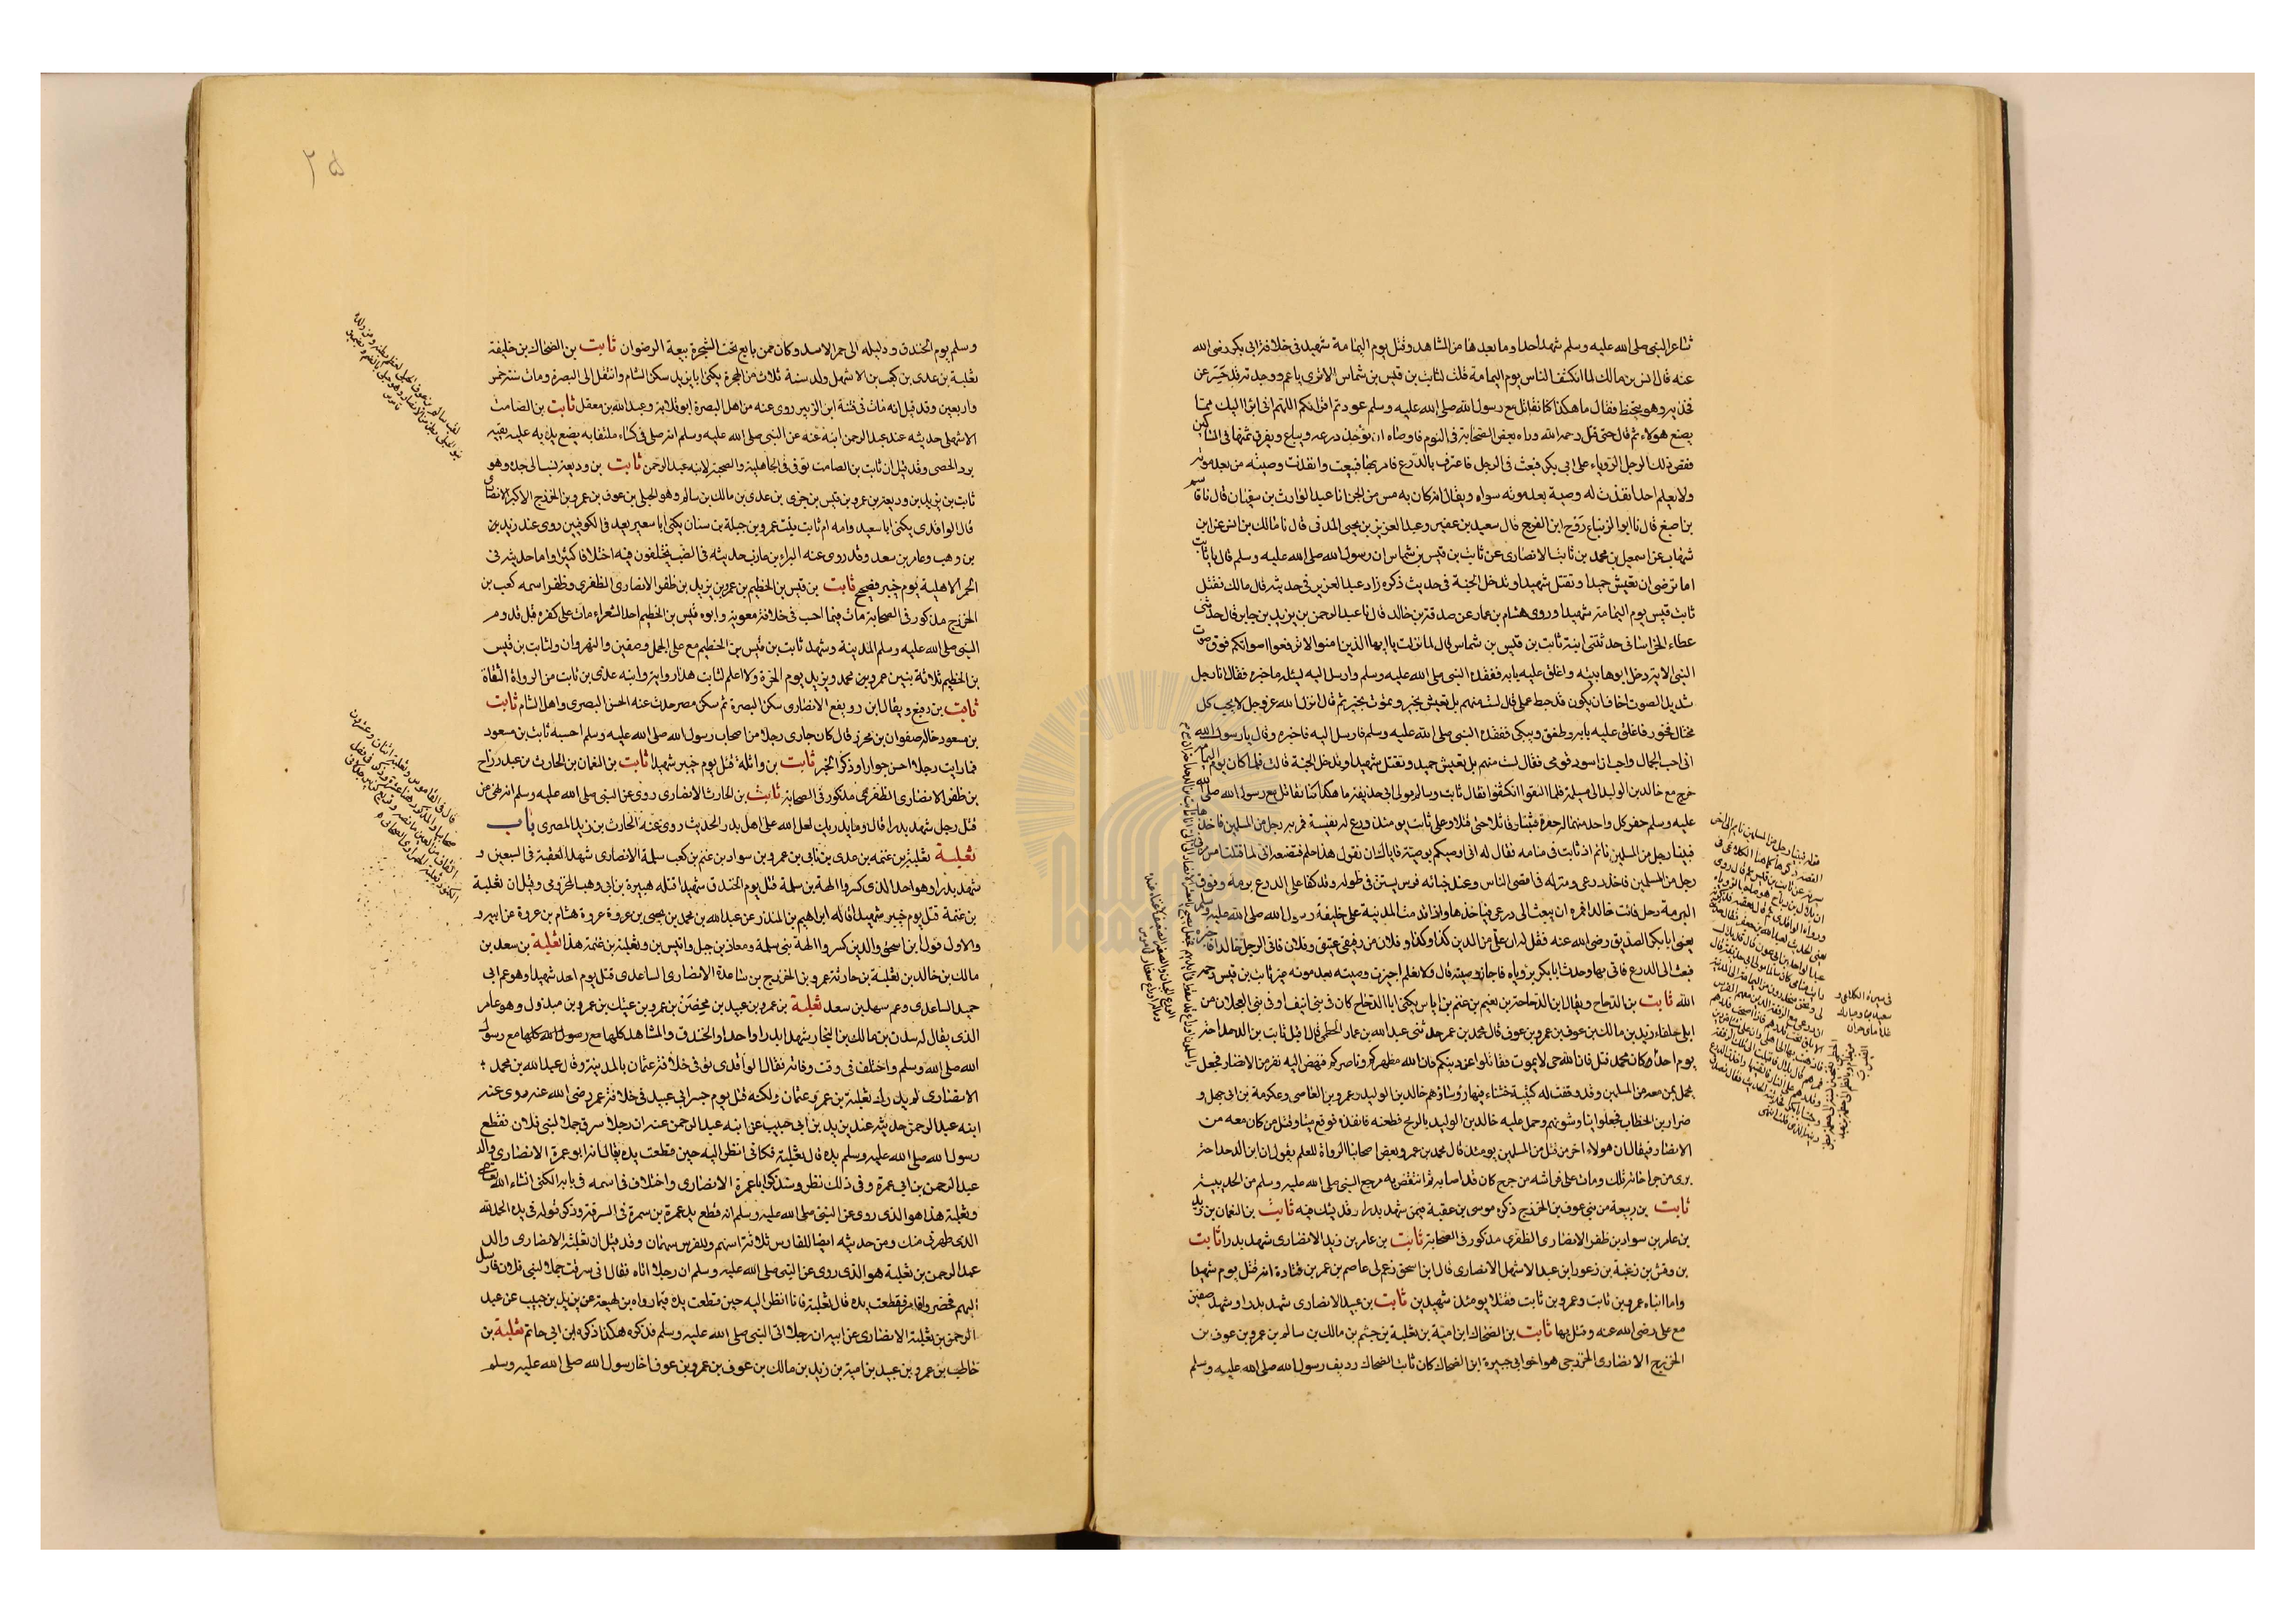 شاعر النبى صلى الله عليه وسلم شهد احدا وما بعدها من المشاهد وقتل يوم اليمامة شهيد فى خلافة ابى بكر رضى الله
عنه قال انس بن مالك لما انكشف الناس يوم اليمامة قلت لثابت بن قيس بن شماس الا ترى يا عم ووجدته قد حسر عن
فخذيه وهو يتحنط فقال ما هكذا كنا نقاتل مع رسول الله صلى الله عليه وسلم عودتم اقرانكم اللهم انى ابرا اليك مما
يصنع هولاء ثم قال حتى قتل رحمه الله وراه بعض الصحابة فى النوم فاوصاه ان تؤخذ درعه ويباع ويفرق ثمنها فى المساكين
فقص ذلك الرجل الروياء على ابى بكر فبعث فى الرجل فاعترف بالدرع فامر بها فبيعت وانفذت وصيته من بعد موته
ولا يعلم احد انفذت له وصية بعد موته سواه ويقال انه كان به مس من الجن انا عبد الوارث بن سفيان قال نا قاسم
بن اصبغ قال نا ابو الزنباع روح ابن الفرج قال سعيد بن عفير وعبد العزيز بن يحيى المدنى قال نا مالك بن انس عن ابن
شهاب عن اسمعيل بن محمد بن ثابت الانصارى عن ثابت بن قيس بن شماس ان رسول الله صلى الله عليه وسلم قال يا ثابت
اما ترضى ان تعيش حميدا وتقتل شهيدا وتدخل الجنة فى حديث ذكره زاد عبد العزيز فى حديثه قال مالك فقتل
ثابت قيس يوم اليمامة شهيدا وروى هشام بن عمار عن صدقة بن خالد قال نا عبد الرحمن بن يزيد بن جابر قال حدثنى
عطاء الخراسانى حدثتنى ابنة ثابت بن قيس بن شماس قال لما نزلت يا ايها الذين امنوا لا ترفعوا اصواتكم فوق صوت
النبى الاية دخل ابوها بيته واغلق عليه بابه ففقده النبى صلى الله عليه وسلم وارسل اليه ليسئله ما خبره فقال انا رجل
شديد الصوت اخاف ان يكون قد حبط عملى قال لست منهم بل تعيش بخير وتموت بخير ثم قال انزل الله عز وجل لا يحب كل
مختال فخور فاغلق عليه بابه وطفق ويبكى ففقده النبى صلى الله عليه وسلم فارسل اليه فاخبره وقال يا رسول الله
انى احب الجمال واحب ان اسود قومى فقال لست منهم بل تعيش حميد وتقتل شهيدا وتدخل الجنة قالت فلما كان يوم اليمامة
خرج مع خالد بن الوليد الى مسيلمة فلما التقوا انكشفوا فقال ثابت وسالم مولى ابى حذيفة ما هكذا كنا نقاتل مع رسول الله صلى الله
عليه وسلم حفر كل واحد منهما له حفرة فثبتا وقاتلا حتى قتلا وعلى ثابت يومئذ درع له نفيسة فمر به رجل من المسلمين فاخذ
فبينا رجل من المسلمين نائم اذ ثابت فى منامه فقال له انى اوصيكم بوصية فاياك ان تقول هذا حلم فتضيعه انى لما قتلت امس مر بى
رجل من المسلمين فاخذ درعى ومنزله فى اقصى الناس وعند خبائه فرس يستن فى طوله وقد كفا على الدرع برمه وفوق
البرمة رحل فائت خالدا فمره ان يبعث الى درعى فياخذها واذا قدمت المدينة على خليفة رسول الله صلى الله عليه وسلم
يعنى ابا بكر الصديق رضى الله عنه فقل له ان على من الدين كذا وكذا وفلان من رقيقى عتيق وفلان فاتى الرجل خالدا فاخبره
فبعث الى الدرع فاتى بها وحدث ابا بكر برؤياه فاجاز وصيته قال ولا نعلم اجيزت وصيته بعد موته غير ثابت بن قيس رحمه
الله ثابت بن الدحداح ويقال ابن الدحداحة بن نعيم بن غنم بن اياس يكنى ابا الدحداح كان فى بنى انيف او فى بنى العجلان من
بلى حلفاء زيد بن مالك بن عوف بن عمرو بن عوف قال محمد بن عمر حدثنى عبد الله بن عمار الخطمى قال اقبل ثابت بن الدحداحة
يوم احد ان كان محمد قتل فان الله حى لا يموت فقاتلوا عن دينكم فان الله مظهركم وناصركم فنهض اليه نفر من الانصار فجعل
يحمل بمن معه من المسلمين وقد وقفت له كتيبة خشناء فيها رؤساؤهم خالد بن الوليد وعمرو بن العاصى وعكرمة بن ابى جهل و
ضرار بن الخطاب فجعلوا يناوشونهم وحمل عليه خالد بن الوليد بالرمح فطعنه فانفذه فوقع ميتا وقتل من كان معه من
الانصار فيقال ان هولاء اخر من قتل من المسلمين يومئذ قال محمد بن عمر وبعض اصحابنا الرواة للعلم يقول ان ابن الدحداحة
برى من جراحاته تلك ومات على فراشه من جرح كان قد اصابه ثم انتقض به مرجع النبى صلى الله عليه وسلم من الحديبية
ثابت بن ربيعة من بنى عوف بن الخزرج ذكره موسى بن عقبة فيمن شهد بدرا وقد يشك فيه ثابت بن النعمان بن زيد
بن عامر بن سواد بن ظفر الانصارى الظفرى مذكور فى الصحابة ثابت بن عامر بن زيد الانصارى شهد بدرا ثابت
بن وقش بن زغبة بن زعورا بن عبد الاشهل الانصارى قال ابن اسحق زعم لى عاصم بن عمر بن قتادة انه قتل يوم شهيدا
واما ابناه عمرو بن ثابت وعمرو بن ثابت فقتلا يومئذ شهيدين ثابت بن عبيد الانصارى شهد بدرا وشهد صفين
مع على رضى الله عنه وقتل بها ثابت بن الضحاك ابن امية بن ثعلبة بن جشم بن مالك بن سالم بن عمرو بن عوف بن
الخزرج الانصارى الخزرجى هو اخو ابى جبيرة ابن الضحاك كان ثابت الضحاك رديف رسول الله صلى الله عليه وسلم
٢٥
وسلم يوم الخندق ودليله الى حمراء الاسد وكان ممن بايع تحت الشجرة بيعة الرضوان ثابت بن الضحاك بن خليفة
ثعلبة بن عدى بن كعب بن الاشهل ولد سنة ثلاث من الهجرة يكنى ابا يزيد سكن الشام وانتقل الى البصرة ومات سنة خمس
واربعين وقد قيل انه مات فى فتنة ابن الزبير روى عنه من اهل البصرة ابو قلابة وعبد الله بن معقل ثابت بن الصامت
الاشهلى حديثه عند عبد الرحمن ابنه عنه عن النبى صلى الله عليه وسلم انه صلى فى كساء ملتفا به يضع يديه عليه يقيه
برد الحصى وقد قيل ان ثابت بن الصامت توفى فى الجاهلية والصحبة لابنه عبد الرحمن ثابت بن وديعة نسب الى جده وهو
ثابت بن يزيد بن وديعة بن عمرو بن قيس بن جزى بن عدى بن مالك بن سالم وهو الحبلى بن عوف بن عمرو بن الخزرج الاكبر الانصارى
قال الواقدى يكنى ابا سعيد وامه ام ثابت بنت عمرو بن جبلة بن سنان يكنى ابا سعيد يعد فى الكوفيين روى عنه زيد بن
بن وهب وعامر بن سعد وقد روى عنه البراء بن عازب حديثه فى الضب يختلفون فيه اختلافا كثيرا واما حديثه فى
الحمر الاهلية يوم خيبر فصحيح ثابت بن قيس بن الخطيم بن عمرو بن يزيد بن ظفر الانصارى الظفرى وظفر اسمه كعب بن
الخزرج مذكور فى الصحابة مات فيما احسب فى خلافة معوية وابوه قيس بن الخطيم احد الشعراء مات على كفره قبل قدوم
النبى صلى الله عليه وسلم المدينة وشهد ثابت بن قيس بن الخطيم مع على الجمل وصفين والنهروان ولثابت بن قيس
بن الخطيم ثلاثة بنين عمرو بن محمد ويزيد يوم الحرة ولا اعلم لثابت هذا رواية وابنه عدى بن ثابت من الرواة الثقاة
ثابت بن رفيع ويقال ابن رويفع الانصارى سكن البصرة ثم سكن مصر حدث عنه الحسن البصرى واهل الشام ثابت
بن مسعود خاله صفوان بن محرز قال كان جارى رجلا من اصحاب رسول الله صلى الله عليه وسلم احسبه ثابت بن مسعود
فما رايت رجلا احسن جوارا وذكر الخبر ثابت بن واثلة قتل يوم خيبر شهيدا ثابت بن النعمان بن الحارث بن عبد رزاح
بن ظفر الانصارى الظفرى مذكور فى الصحابة ثابت بن الحارث الانصارى روى عن النبى صلى الله عليه وسلم انه نهى عن
قتل رجل شهد بدرا قال وما يدريك لعل الله على اهل بدر الحديث روى عنه الحارث بن زيد المصرى باب
ثعلبة ثعلبة بن عنمه بن عدى بن نابى بن عمرو بن سواد بن غنم بن كعب سلمة الانصارى شهد العقبة فى السبعين و
شهد بدرا وهو احد الذى كسروا الهة بن سلمة قتل يوم الخندق شهيدا قتله هبيرة بن ابى وهب المخزومى وقيل ان ثعلبة
بن عنمة قتل يوم خيبر شهيدا قاله ابراهيم بن المنذر عن عبد الله بن محمد بن يحيى بن عروة عروة هشام بن عروة عن ابيه و
والاول قول ابن اسحق والذين كسروا الهة بنى سلمة ومعاذ بن جبل وانيس بن وثعلبة بن عنمة هذا ثعلبة بن سعد بن
مالك بن خالد بن ثعلبة بن حارثة عمرو بن الخزرج بن ساعدة الانصارى الساعدى قتل يوم احد شهيد وهو عم ابى
حميد الساعدى وعم سهل بن سعد ثعلبة بن عمرو بن عبيد بن محيصن بن عمرو بن عتيك بن عمرو بن مبذول وهو عامر
الذى يقال له سدن بن مالك بن النجار شهد بدرا واحدا والخندق والمشاهد كلها مع رسول الله كلها مع رسول
الله صلى الله وسلم واختلف فى وقت وفاته فقال الواقدى توفى خلافة عثمان بالمدينة وقال عبد الله بن محمد
الانصارى لم يدرك ثعلبة بن عمرو عثمان ولكنه قتل يوم جسر ابى عبيد فى خلافة عمر رضى الله عنه روى عنه
ابنه عبد الرحمن حديثه عند يزيد بن ابى حبيب عن ابنه عبد الرحمن عنه ان رجلا سرق جملا لبنى فلان فقطع
رسول الله صلى الله عليه وسلم يده قال ثعلبة فكانى انظر اليه حين قطعت يده يقال انه ابو عمرة الانصارى والد
عبد الرحمن بن ابى عمرة وفى ذلك نظر وستذكر ابا عمرة الانصارى واختلاف فى اسمه فى بابه الكنى انشاء الله تعالى
وثعلبة هذا هو الذى روى عن النبى صلى الله عليه وسلم انه قطع يد عمرة بن سمرة فى السرقة وذكر قوله فى يده الحمد لله
الذى طهرنى منك ومن حديثه ايضا للفارس ثلاثة اسهم وللفرس سهمان وقد قيل ان ثعلبة الانصارى والد
عبد الرحمن بن ثعلبة هو الذى روى عن النبى صلى الله عليه وسلم ان رجلا اتاه فقال انى سرقت جملا لبنى فلان فارسل
اليهم فحضروا فامر فقطعت يده قال ثعلبة فانا انظر اليه حين قطعت يده فيما رواه بن لهيعة عن يزيد بن حبيب عن عبد
الرحمن بن ثعلبة الانصارى عن ابيه ان رجلا اتى النبى صلى الله عليه وسلم فذكره هكذا ذكره ابن ابى حاتم ثعلبة بن
حاطب بن عمرو بن عبيد بن امية بن زيد بن مالك بن عوف بن عمرو بن عوف اخا رسول الله صلى الله عليه وسلم